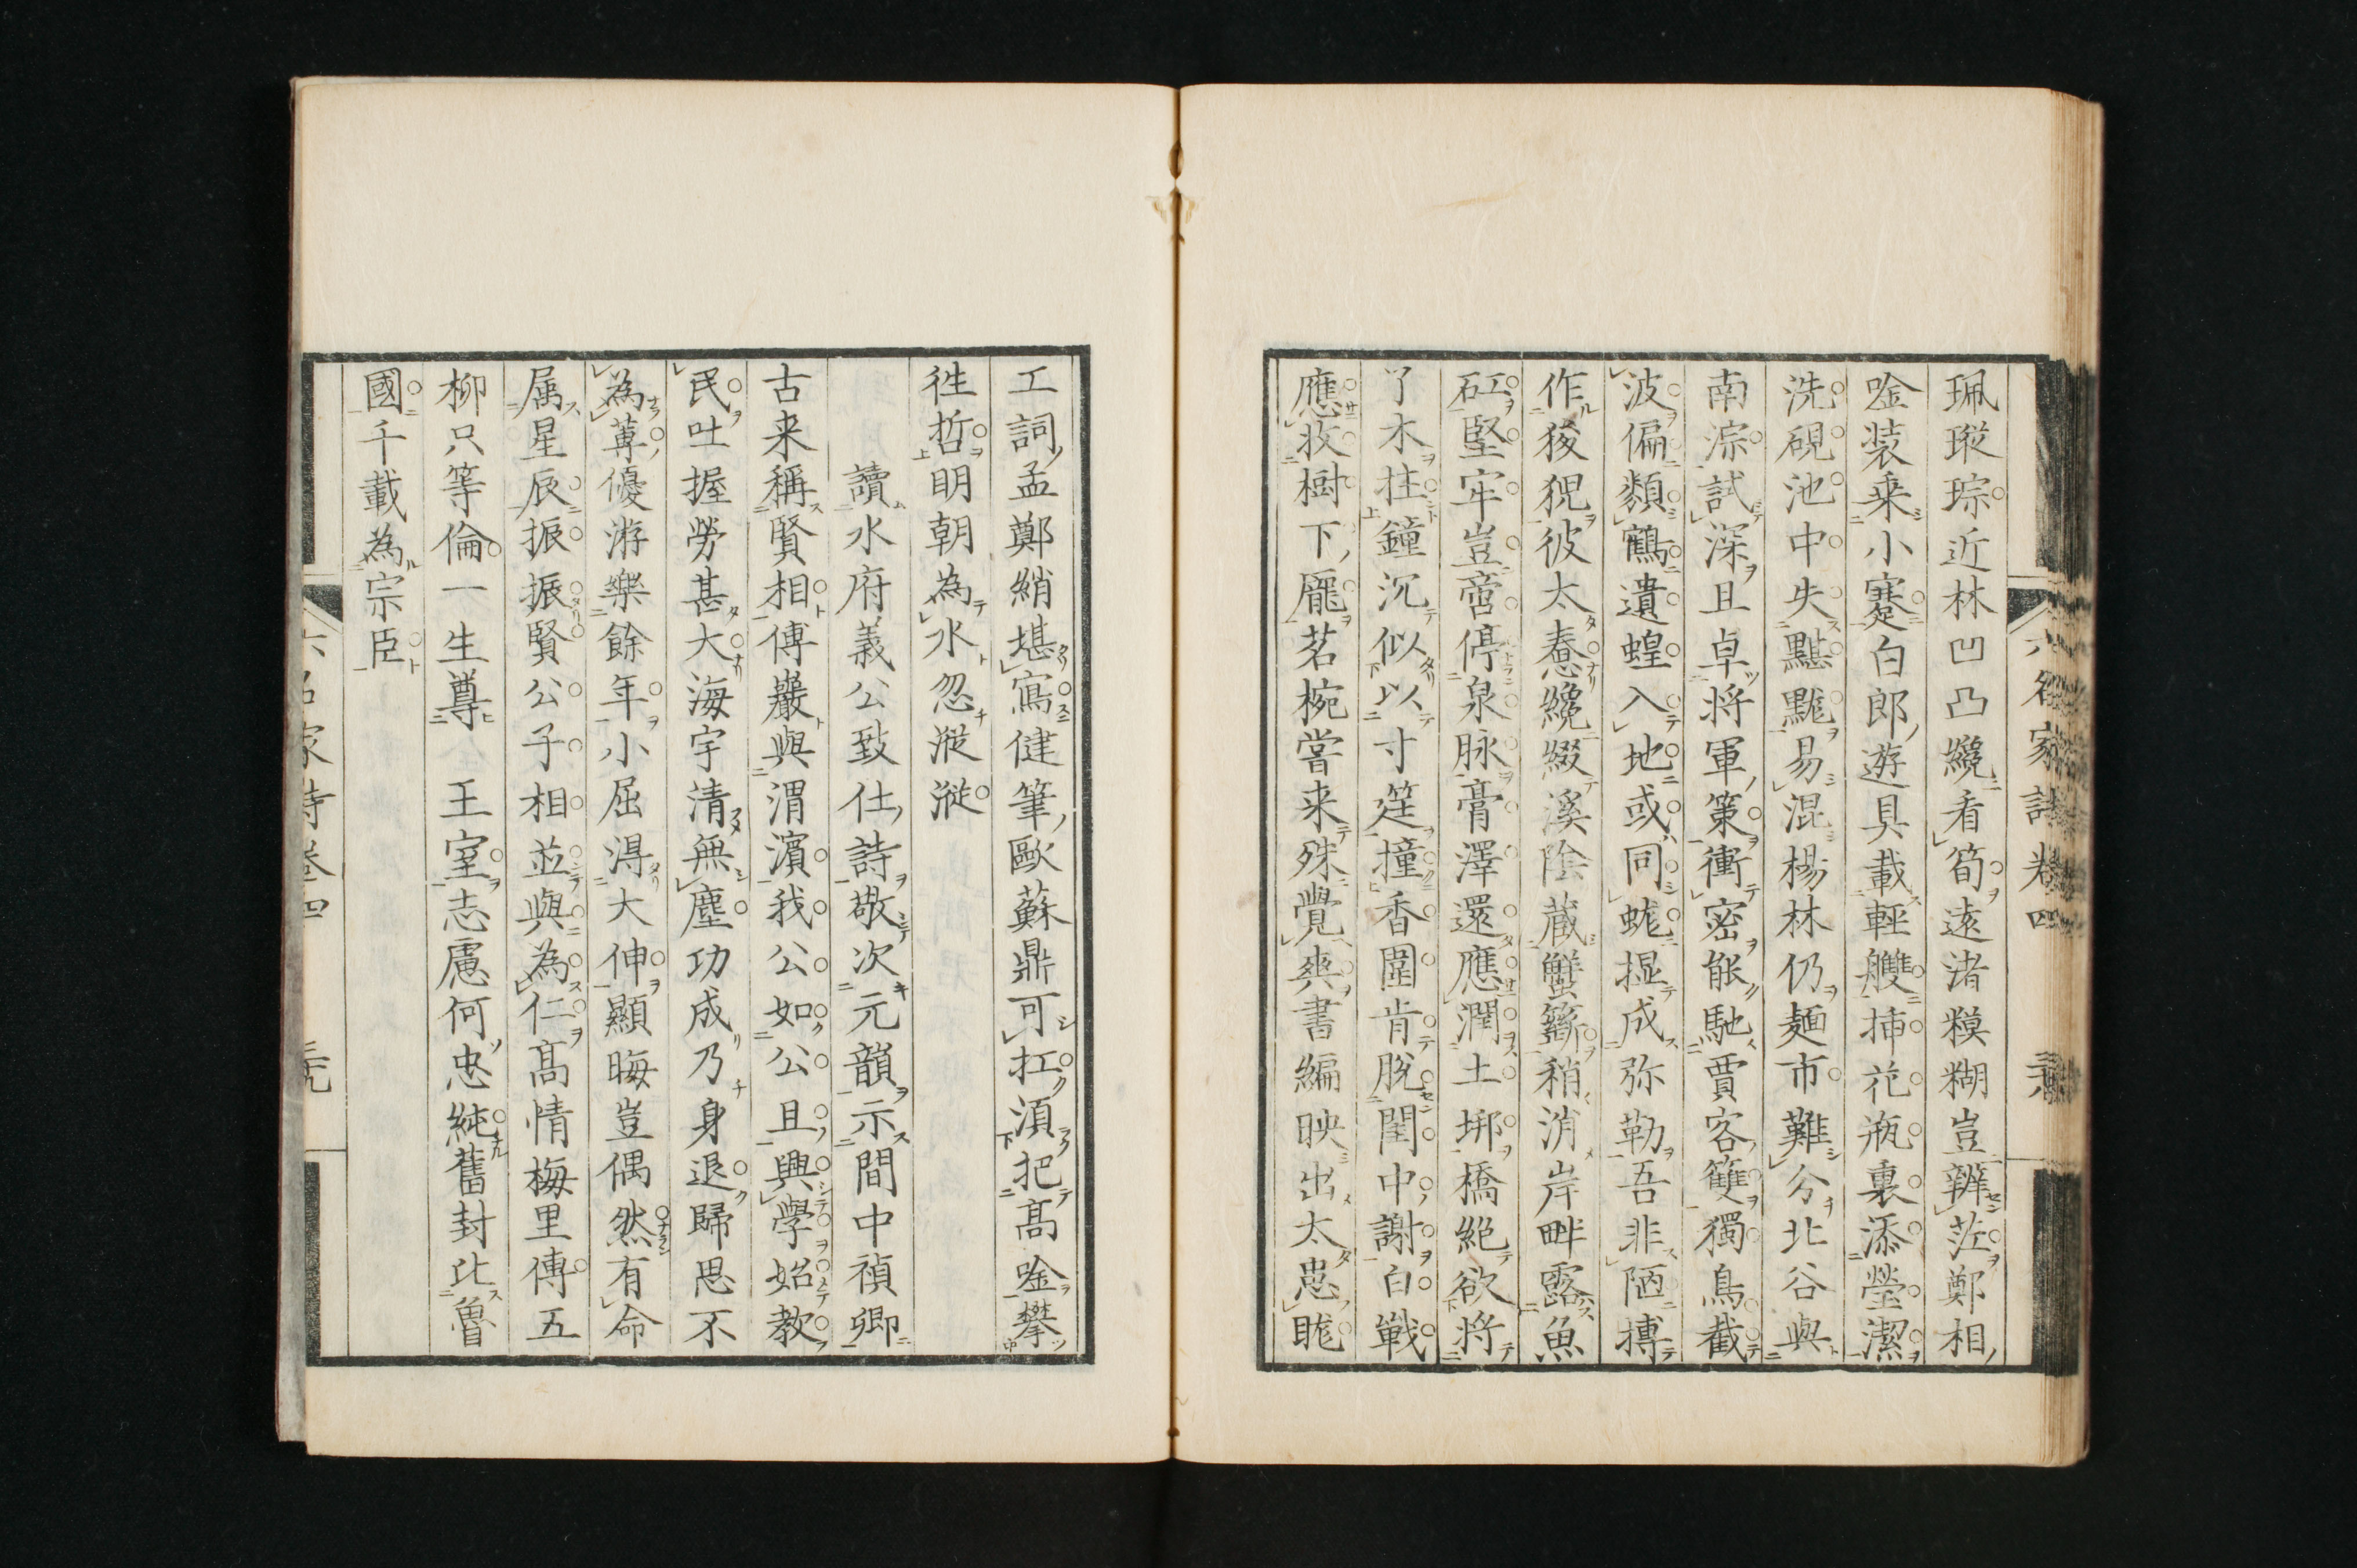 珮瑽琮近林凹凸纔看筍遠渚糢糊豈辨茳鄭相
唫装来小蹇白郎遊具載輕艭挿花瓶裏添瑩潔
洗硯池中失黮黬易混楊林仍麺市難分北谷與
南淙試深且卓將軍策衝密能馳賈客䉶獨鳥截
波偏類鶴遺蝗入地或同蛖掘成弥勒吾非陋搏
作狻猊彼太惷纔綴溪陰蔵蟹籪稍消岸畔露魚
矼堅牢豈啻停泉脉膏澤還應潤土垹橋絶欲將
丫木拄鐘沉似以寸筳撞香圍肯脱闉中謝白戦
應牧樹下龎茗椀嘗来殊覺爽書編映出太悤眬
六名家詩 卷四
工詞孟鄭綃堪寫健筆歐蘇鼎可扛湏把髙唫攀
徃哲明朝為水忽漎漎
讀水府義公致仕詩敬次元韻示間中禎卿
古来稱賢相傅巖與渭濱我公如公且興學始教
民吐握勞甚大海宇清無塵功成乃身退歸思不
為蓴優游樂餘年小屈淂大伸顯晦豈偶然有命
属星辰振振賢公子相並與為仁髙情梅里傳五
柳只等倫一生尊 王室志慮何忠純舊封比魯
國千載為宗臣
六名家詩卷四